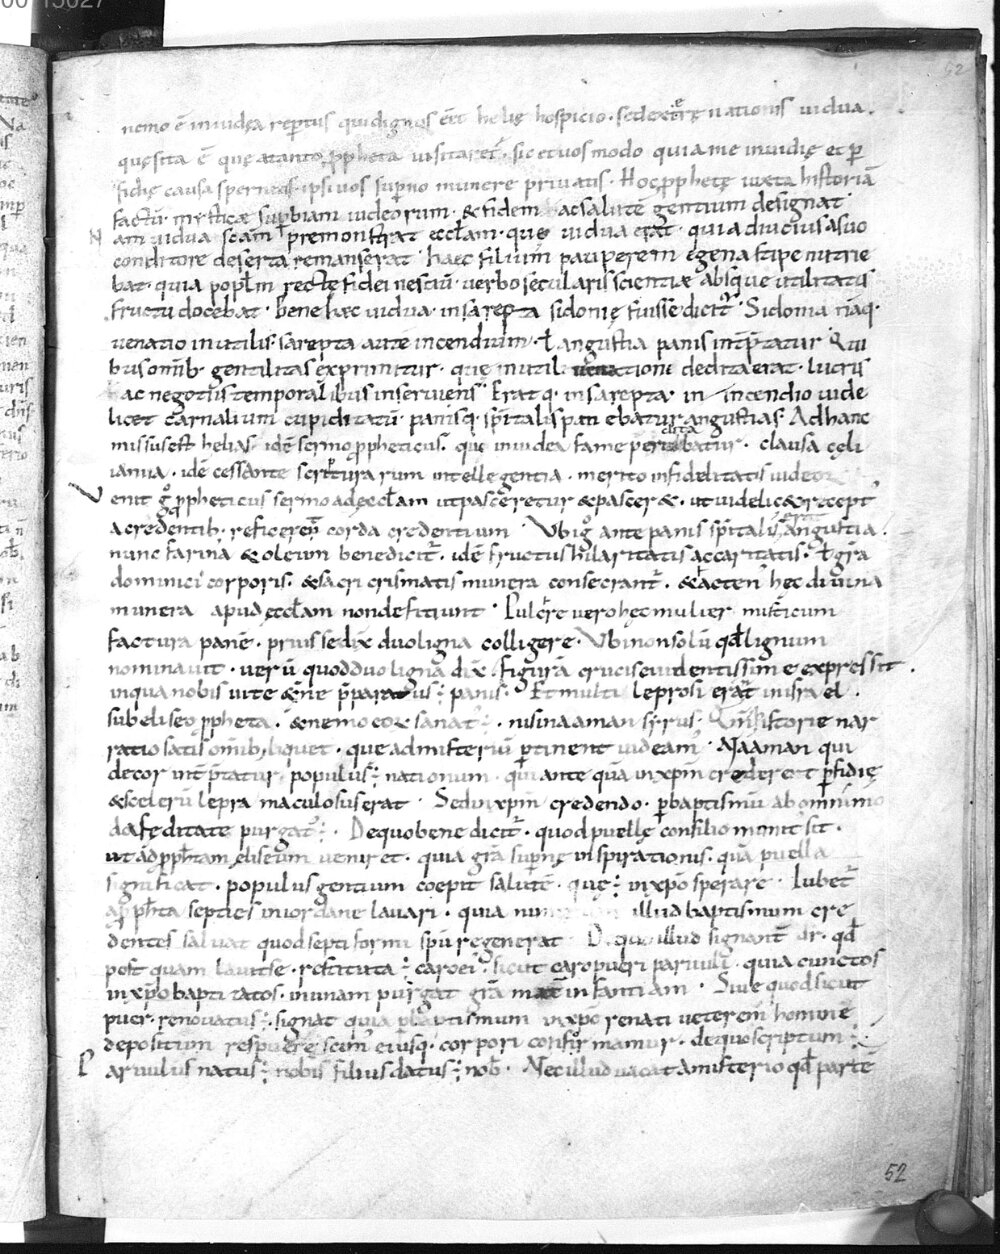 nemo ē iniudęa repertus quidignus eēt helię hospicio. sedexterę nationis uidua.
quęsita ē quę atanto ppheta uisitaret. sic etuos modo quiame inuidię et p
fidię causa spernitis. ipsi uos supno munere priuatis. Hoc pphetę iuxta historiā
factū mysticae supbiam iudeorum. & fidem acsalutē gentium designat
Nam uidua scam premonstrat ecclam. quę uidua erat. quia diucius asuo
conditore deserta remanserat. haec filium pauperem egena stipe nutrie
bat. quia poplm rectę fidei nesciū. uerbo secularis scientiae absque utilitatis
fructu docebat. bene hęc uidua. insarepta sidonię fuisse dicit. Sidonia naq.
uenatio inutilis. sarepta autē incendium. ł angustia panis intptatur. Qui
bus omib. gentilitas exprimitur. que inutili uenatione dedita erat. lucris
ac negotiis temporalibus inseruiens. Erat q. insarepta. in incendio uide
licet carnalium cupiditatū. panisq. spitalis patiebatur angustias. Adhanc
missus est helias. idē sermo ppheticus. qui iniudea fame peribatur. clausa cęli
ianua. idē cessante scripturarum intellegentia. merito infidelitatis iudeor
Venit g ppheticus sermo adęcclam ut pasceretur & pascer&. ut uidelic& recept
acredentib. reficeret corda credentium. Ubi g ante panis spitalis erat angustia.
nunc farina & oleum benedicit. idē fructus hilaritatis ac caritatis. ł gra
dominici corporis. & sacri crismatis munera consecrant. & actenꝰ hęc diuina
munera apud ęcclam non defitiunt. Pulcre uero hęc mulier misticum
factura panē. prius se dix duo ligna colligere. Ubi non solū qd lignum
nominauit. uerū quod duo ligna dix. figurā crucis euidentissime expressit.
in qua nobis uite &ne pparatus ÷ panis. Et multi leprosi erāt inisrael.
sub eliseo ppheta. & nemo eox sanatꝰ ÷. nisi naaman syrus. Qm historie nar
ratio satis omib, liquet. que ad misteriū ptinent uideamꝰ. Naaman qui
decor intptatur, populus ÷ nationum. qui ante quā inxpm crederet pfidię
& scelerū lepra maculosus erat. Sed inxpm credendo. p baptismū ab omni
da fęditate purgatꝰ ÷. De quo bene dicit. quod puellę consilio monitꝰ sit.
ut ad pphtam eliseum ueniret. quia gra supnę inspirationis. quā puella
significat. populus gentium coepit salutē. quę ÷ inxpo sperare. Iubetꝰ
a ppheta septies iniordane lauari. quia illud baptismum cre
dentes saluat quod septiformi spu regenerat. De quo illud signantꝰ qd
post quam lauit se. restituta ÷ caro ei. sicut caro pueri paruuli. quia cunctos
inxpo baptizatos. inunam purgat gra infantiam. Siue quod sicut
puer. renouatus ÷. signat quia p baptismum inxpo renati ueterem hominē
depositum respuere scim eiusq. corpori confirmamur. de quo scriptum ÷.
Paruulus natus ÷ nobis filius datus ÷ nob. Nec illud uacat amisterio qd partē
52